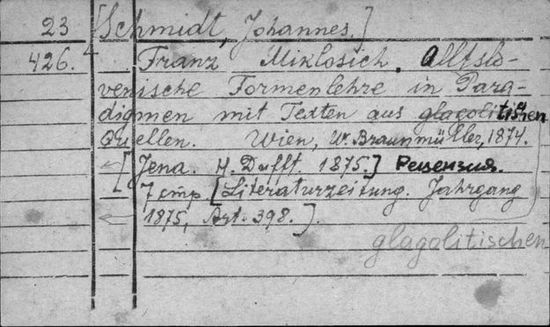 23 [Schmidt, Johannes.]
426. Franz Miklosich. Altslo-
venische Formenlehre in Para-
digmen mit Texten aus glagolitischen
Quellen. Wien, W. Braunmüller, 1874.
[Jena. H. Dufft. 1875.] Рецензия.
7 стр. [Literaturzeitung. Jahrgang
1875, Art. 398.]
glagolitischen